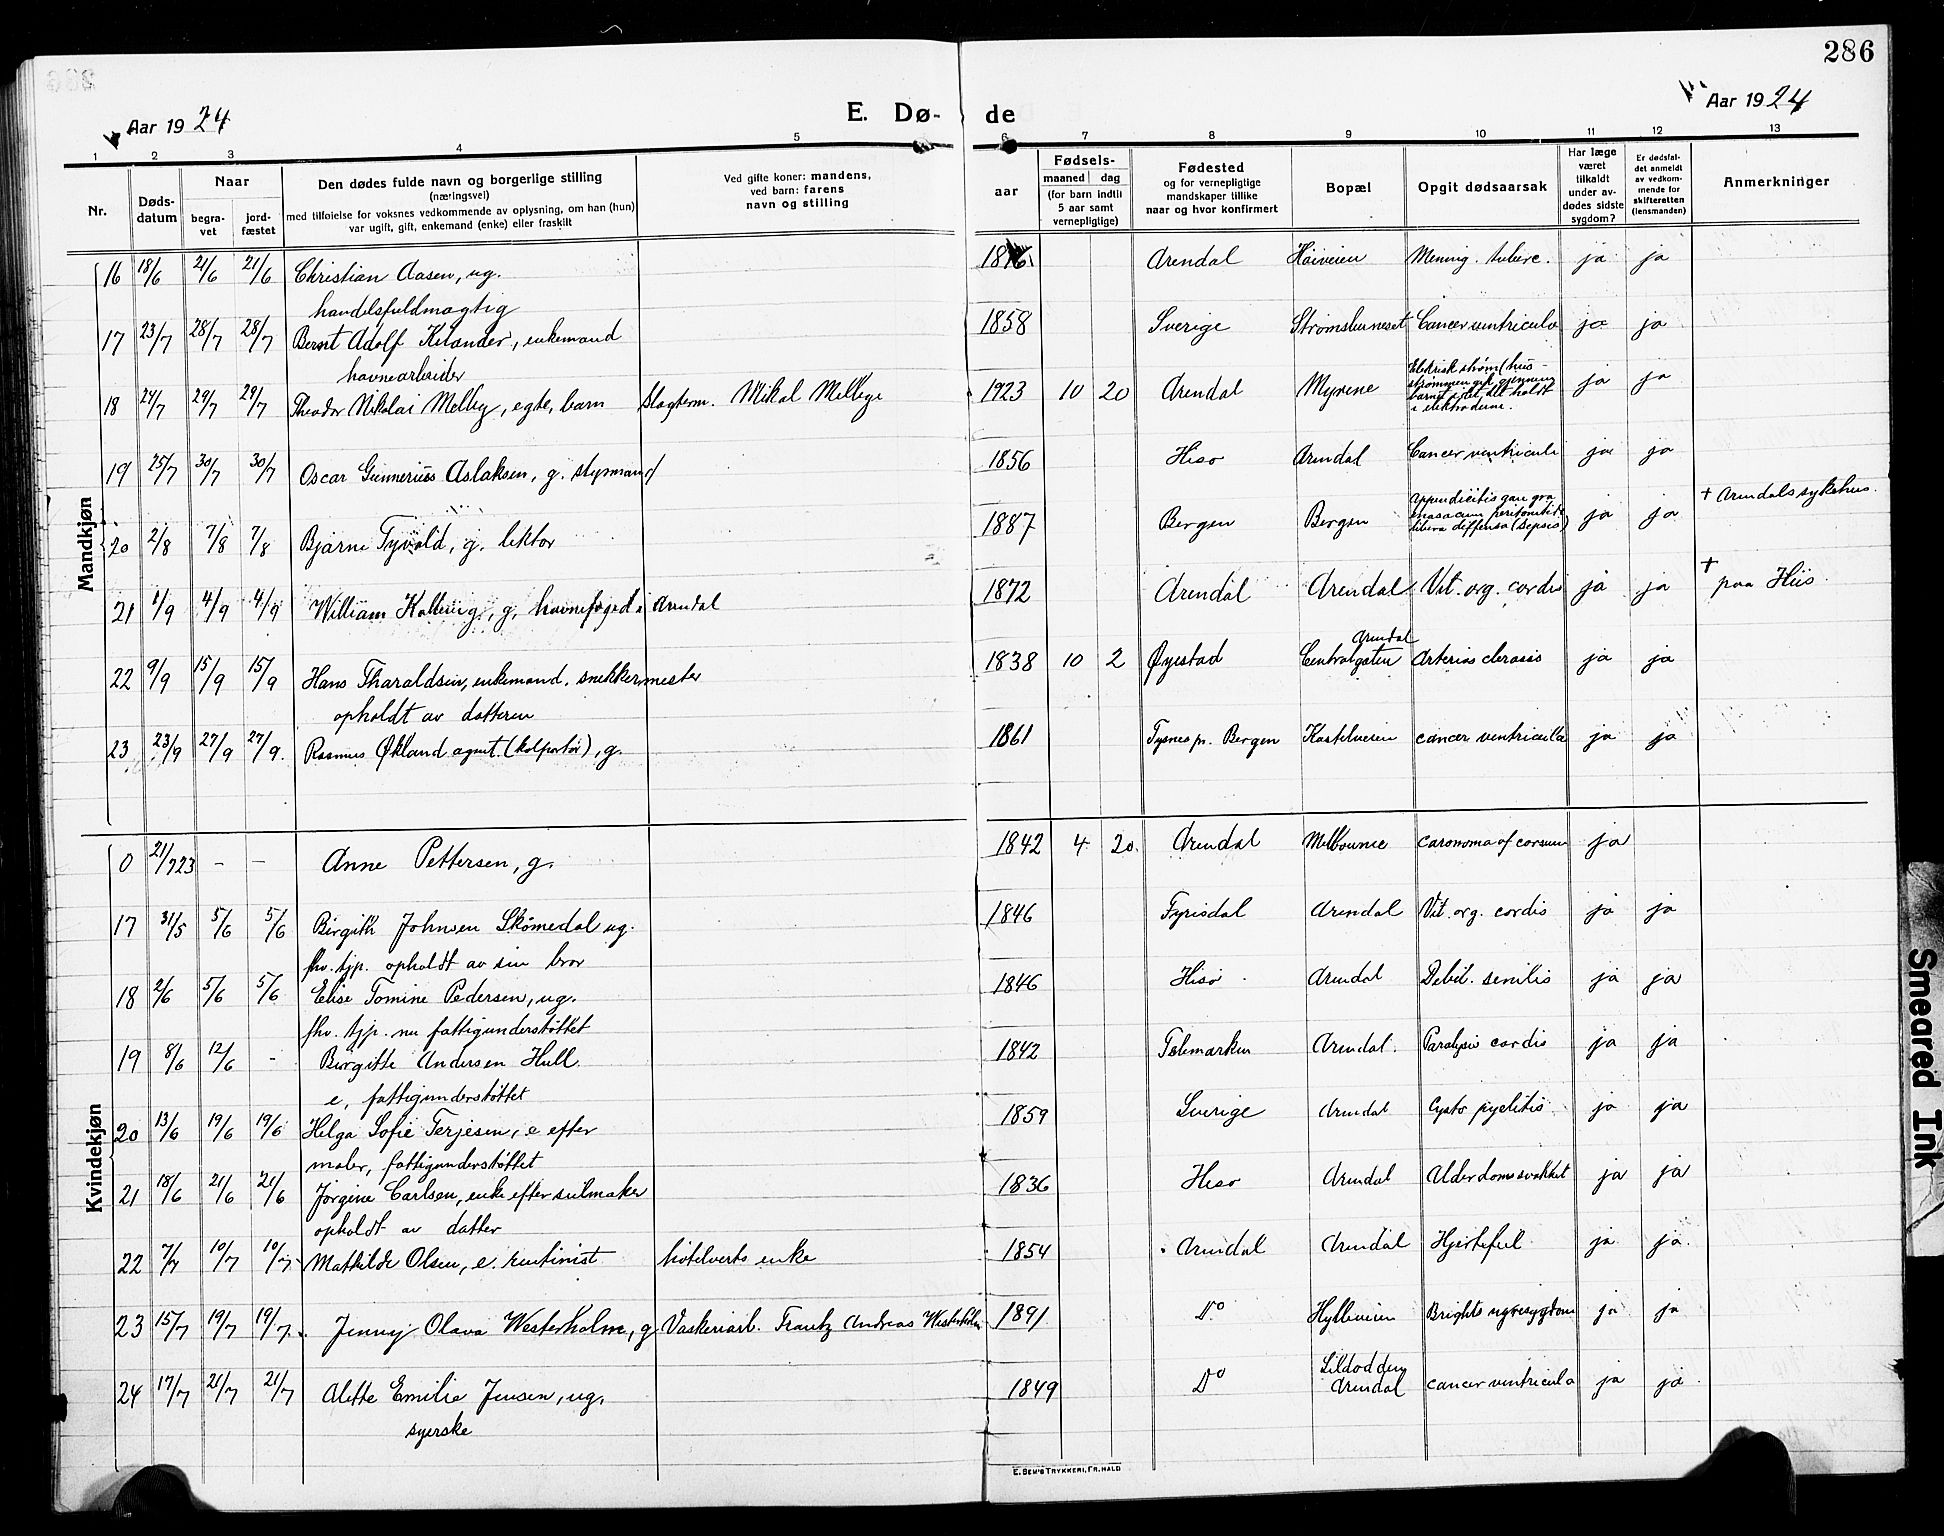 286
Aar 1924
E. Dø-
de
Aar 1924
1 2 3 4 5 6 7 8 9 10 11 12 13
Nr.
Døds-
datum
Naar
begra-
vet
jord-
fæstet
Den dødes fulde navn og borgerlige stilling
(næringsvei)
med tilføielse for voksnes vedkommende av oplysning, om han (hun)
var ugift, gift, enkemand (enke) eller fraskilt
Ved gifte koner: mandens,
ved barn: farens
navn og stilling
aar
Fødsels-
maaned dag
(for barn indtil
5 aar samt
vernepligtige)
Fødested
og for vernepligtige
mandskaper tillike
naar og hvor konfirmert
Bopæl
Opgit dødsaarsak
Har læge
været
tilkaldt
under av-
dødes sidste
sygdom?
Er dødsfal-
det anmeldt
av vedkom-
mende for
skifteretten
(lensmanden)
Anmerkninger
Mandkjøn
16 18/6 21/6 21/6 Christian Aasen, ug. Arendal Høiveien Mening. tuberc. ja ja
handelsfuldmægtig
17 23/7 28/7 28/7 Bernt Adolf Kilander, enkemand 1858 Sverige Strømsbuneset Cancer ventriculi ja ja
havnearbeider
18 24/7 29/7 29/7 Theodor Nikolai Melby, egte, barn Slagterm. Mikal Melbye 1923 10 20 Arendal Myrene Elektrisk strøm (hus-
strømmen gik gjennem
barnet idet det holdt
i elektroderne. ja ja
19 25/7 30/7 30/7 Oscar Gunnerius Aslaksen, g. styrmand 1856 Hisø Arendal Cancer ventriculi ja ja
20 2/8 7/8 7/8 Bjarne Tyvold, g. lektor 1887 Bergen Bergen appendicitis gan gra
enosacum peritonitis
libera diffusa (sepsis) ja ja † Arendals sykehus.
21 1/9 4/9 4/9 William Kallevig, g, havnefoged i Arendal 1872 Arendal Arendal Vit. org. cordis ja ja † paa Hiis.
22 9/9 15/9 15/9 Hans Tharaldsen, enkemand. snekkermester 1838 10 2 Øyestad Centralgaten Arendal Arterios clerosis ja ja
opholdt av datteren
23 23/9 27/9 27/9. Rasmus Økland agent. (kolportør), g. 1861 Tysnes pr. Bergen Kastelveien cancer ventriculi ja ja
Kvindekjøn
0 21/7 23 - - Anne Pettersen, g. 1842 4 20. Arendal Melbourne caronoma of corsum ja
17 31/5 5/6 5/6 Birgith Johnsen Skømedal ug. 1846 Fyrisdal Arendal Vit. org. cordis ja ja
fhv. tjp. opholdt av sin bror
18 2/6 5/6 5/6 Elise Tomine Pedersen, ug. 1846 Hisø Arendal Debil. senilis ja ja
fhv. tjp. nu fattigunderstøttet
19 8/6 12/6 - Birgitte Andersen Hull. 1842 Telemarken Arendal. Paralysis cordis ja ja
e, fattigunderstøttet
20 13/6 19/6 19/6 Helga Sofie Terjesen, e efter 1859 Sverige Arendal Cysto pyelitis ja ja
maler, fattigunderstøttet
21 18/6 21/6 21/6 Jørgine Carlsen, enke efter seilmaker 1836 Hisø Arendal Alderdomssvakhet ja ja
opholdt av datter
22 7/7 10/7 10/7 Mathilde Olsen, e. rentinist hotelverts enke 1854 Arendal Arendal Hjertefeil ja ja.
23 15/7 19/7 19/7. Jenny Olava Westerholm, g Vaskeriarb. Frantz Andreas Westerholm 1891 Do Hylleveien Brights nyresygdom ja ja
24 17/7 21/7 21/7 Alette Emilie Jensen, ug. 1849 Do Lilodden Arendal cancer ventriculi ja ja
syerske
E. SEM'S TRYKKERI, FR.HALD
Smeared Ink